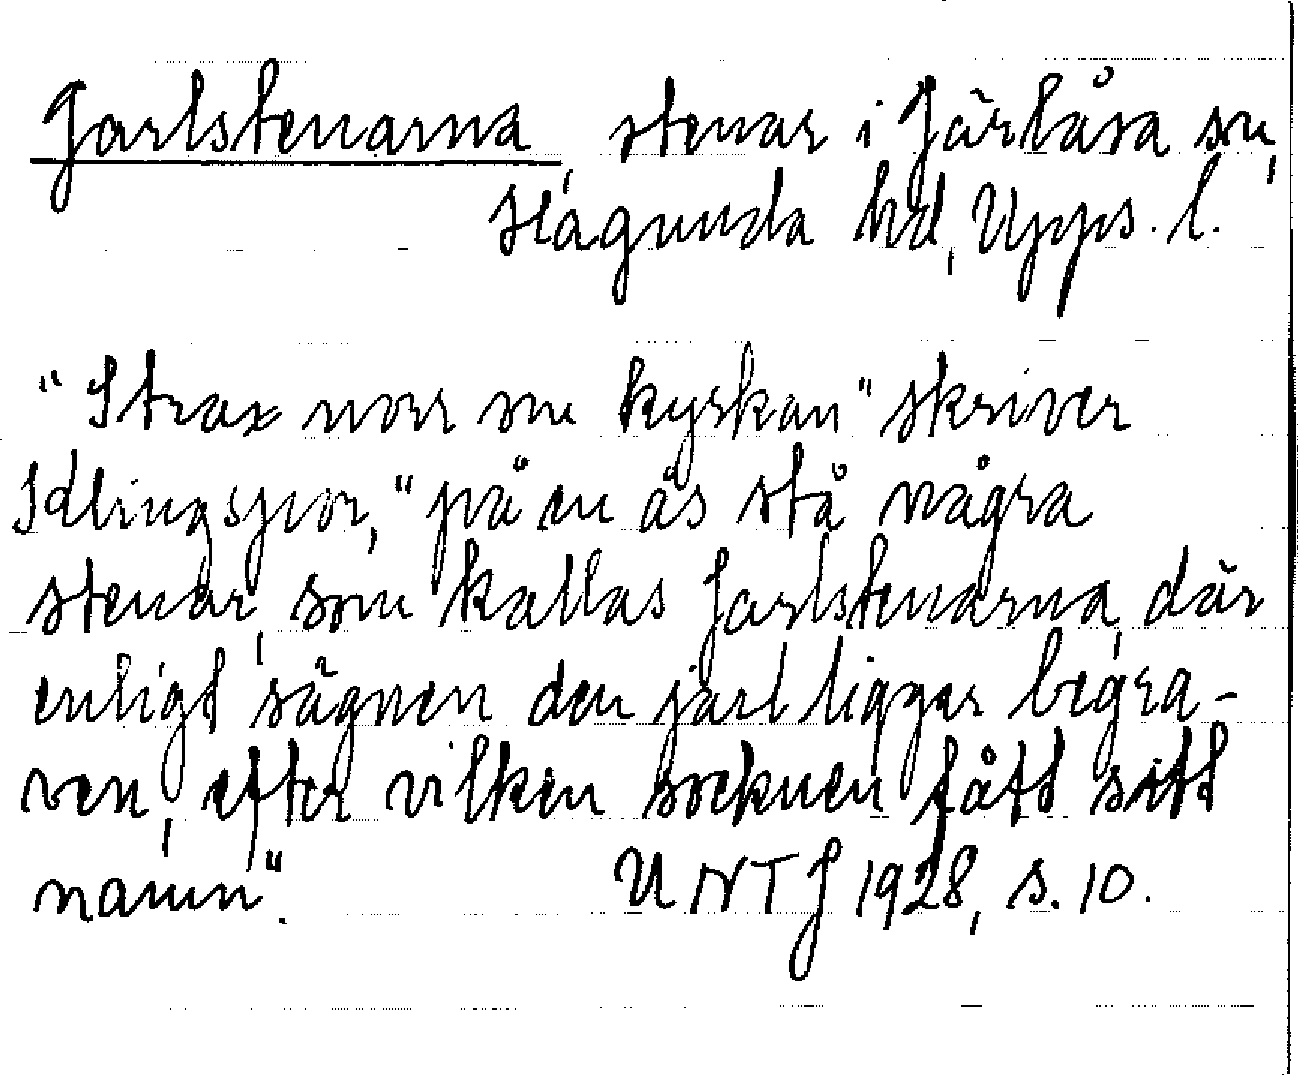 Jarlstenarna, stenar i Järlåsa sn,
Hagunda hd, Upps. l.
"Strax norr om kyrkan" skriver
Klingspor, "på en ås stå några
stenar, som kallas Jarlstenarna, där
enligt sägnen den jarl ligger begra-
ven, efter vilken socknen fått sitt
namn".
UNTJ 1928, s. 10.